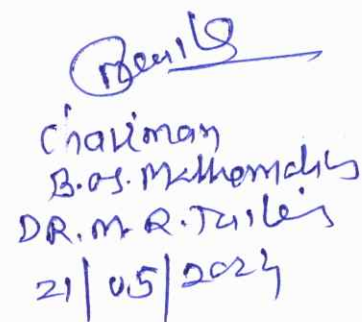 Chairman
B.OS. Mathematics
DR. M. R.
21/05/2024